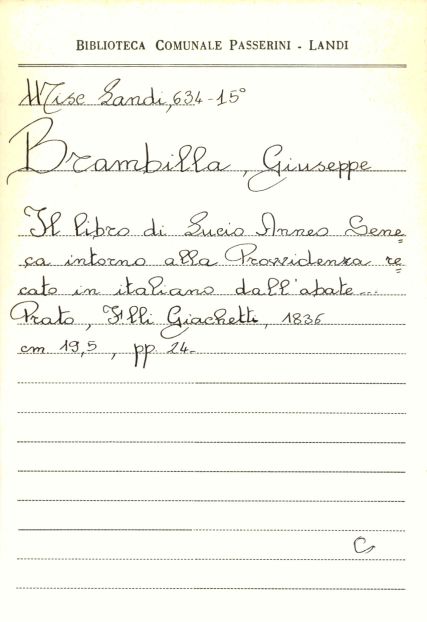 BIBLIOTECA COMUNALE PASSERINI - LANDI
Misc Landi, 634-15°
Brambilla, Giuseppe
Il libro di Lucio Anneo Sene=
ca intorno alla Provvidenza re=
cato in italiano dall'abate...
Prato, F.lli Giachetti, 1836
cm 19,5, pp. 24.
C